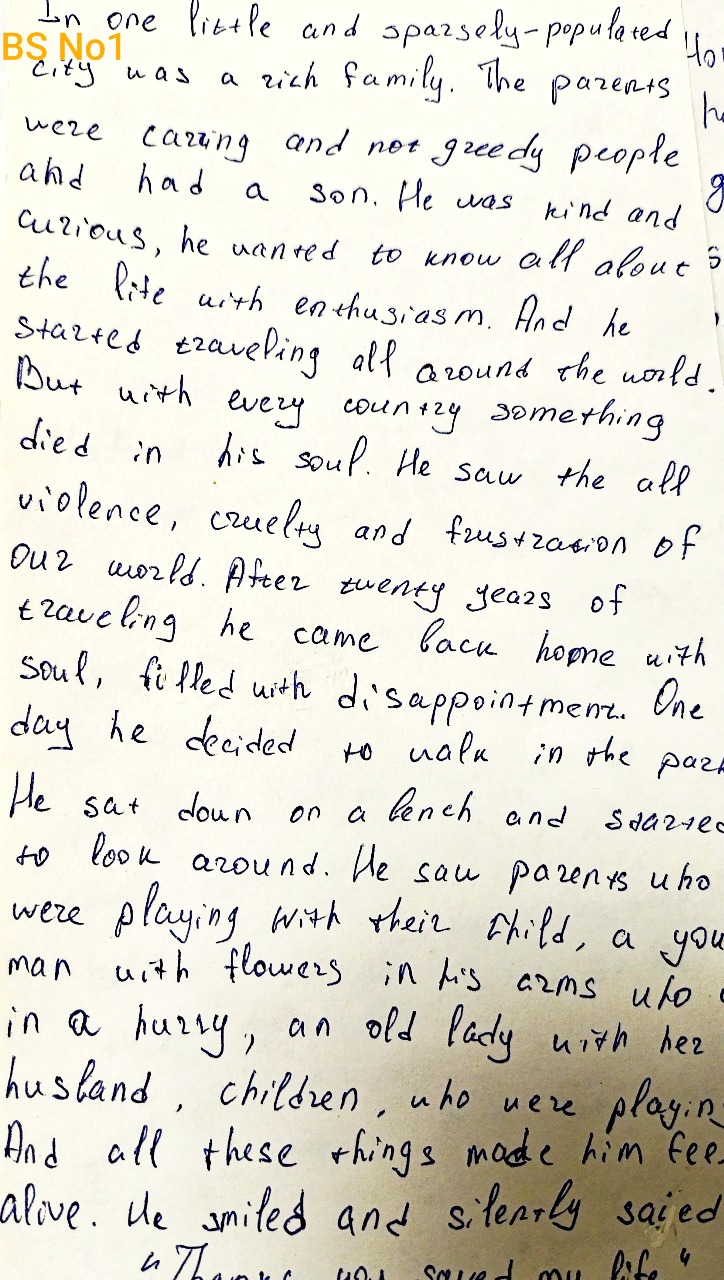 In one little and sparsely-populated
BS No1
city was a rich family. The parents
were carring and not greedy people
and had a son. He was kind and
curious, he wanted to know all about
the life with enthusiasm. And he
started traveling all around the world.
But with every country something
died in his soul. He saw the all
violence, cruelty and frustration of
our world. After twenty years of
traveling he came back home with
soul, filled with disappointment. One
day he decided to walk in the park
He sat down on a bench and started
to look around. He saw parents who
were playing with their child, a you
man with flowers in his arms who
in a hurry, an old lady with her
husband, children, who were playing
And all these things made him fee
alive. He smiled and silently saied
"Thanks you saved my life"